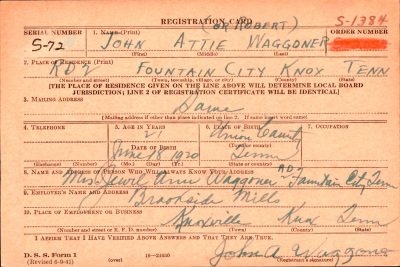 REGISTRATION CARD
(or ROBERT)
S-1384
SERIAL NUMBER 1. NAME (Print) ORDER NUMBER
S-72 JOHN ATTIE WAGGONER
(First) (Middle) (Last)
2. PLACE OF RESIDENCE (Print)
RD2 FOUNTAIN CITY KNOX TENN
(Number and street) (Town, township, village, or city) (County) (State)
[THE PLACE OF RESIDENCE GIVEN ON THE LINE ABOVE WILL DETERMINE LOCAL BOARD
JURISDICTION; LINE 2 OF REGISTRATION CERTIFICATE WILL BE IDENTICAL]
3. MAILING ADDRESS
Same
[Mailing address if other than place indicated on line 2. If same insert word same]
4. TELEPHONE 5. AGE IN YEARS 6. PLACE OF BIRTH 7. OCCUPATION
21 Union County
DATE OF BIRTH (Town or county)
June 18 1920 Tenn
(Exchange) (Number) (Mo.) (Day) (Yr.) (State or country)
8. NAME AND ADDRESS OF PERSON WHO WILL ALWAYS KNOW YOUR ADDRESS
Mrs. Jewel Ann Waggoner RD2 Fountain City Tenn
9. EMPLOYER'S NAME AND ADDRESS
Brookside Mills
10. PLACE OF EMPLOYMENT OR BUSINESS
Knoxville Knox Tenn
(Number and street or R. F. D. number) (Town) (County) (State)
I AFFIRM THAT I HAVE VERIFIED ABOVE ANSWERS AND THAT THEY ARE TRUE.
D. S. S. Form 1
(Revised 6-9-41) (over) John A Waggoner
(Registrant's signature)